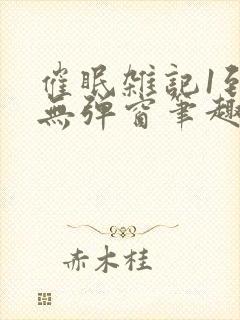 催眠雑記1至
無弹窗筆趣
赤木桂